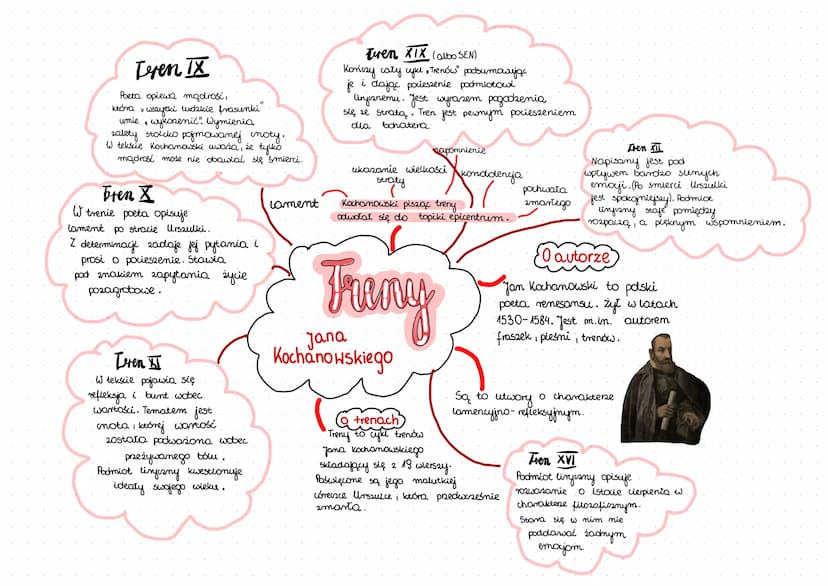 Tren IX
Poeta opiewa mądrość,
która „wszytki ludzkie frasunki"
umie „wykorenić". Wymienia
zalety stoicko pojmowanej cnoty.
W tekście Kochanowski uważa, że tylko
mądrość może nie obawiać się śmierci.
Tren XIX (albo SEN)
Kończy cały cykl „Trenów" podsumowując
je i dając pocieszenie podmiotowi
lirycznemu. Jest wyrazem pogodzenia
się ze stratą. Tren jest pewnym pocieszeniem
dla bohatera
Tren XII
Napisany jest pod
wpływem bardzo silnych
emocji. (Po śmierci Urszulki
jest spokojniejszy). Podmiot
liryczny staje pomiędzy
rozpaczą, a pięknym wspomnieniem.
Tren X
W trenie poeta opisuje
lament po stracie Urszulki.
Z determinacji zadaje jej pytania i
prosi o pocieszenie. Stawia
pod znakiem zapytania życie
pozagrobowe.
lament
ukazanie wielkości
straty
napomnienie
kondolencja
pochwała
zmarłego
Kochanowski pisząc treny
odwołał się do topiki epicentrum.
Treny
Jana
Kochanowskiego
O autorze
Jan Kochanowski to polski
poeta renesansu. Żył w latach
1530-1584. Jest m.in. autorem
fraszek, pieśni, trenów.
Są to utwory o charakterze
lamencyjno-refleksyjnym.
Tren XI
W tekście pojawia się
refleksja i bunt wobec
wartości. Tematem jest
cnota, której wartość
została podważona wobec
przeżywanego bólu.
Podmiot liryczny kwestionuje
ideały swojego wieku.
o trenach
Treny to cykl trenów
Jana Kochanowskiego
składający się z 19 wierszy.
Poświęcone są jego malutkiej
córeczce Urszulce, która przedwcześnie
zmarła.
Tren XVI
Podmiot liryczny opisuje
rozważanie o istocie cierpienia w
charakterze filozoficznym.
Stara się w nim nie
poddawać żadnym
emocjom